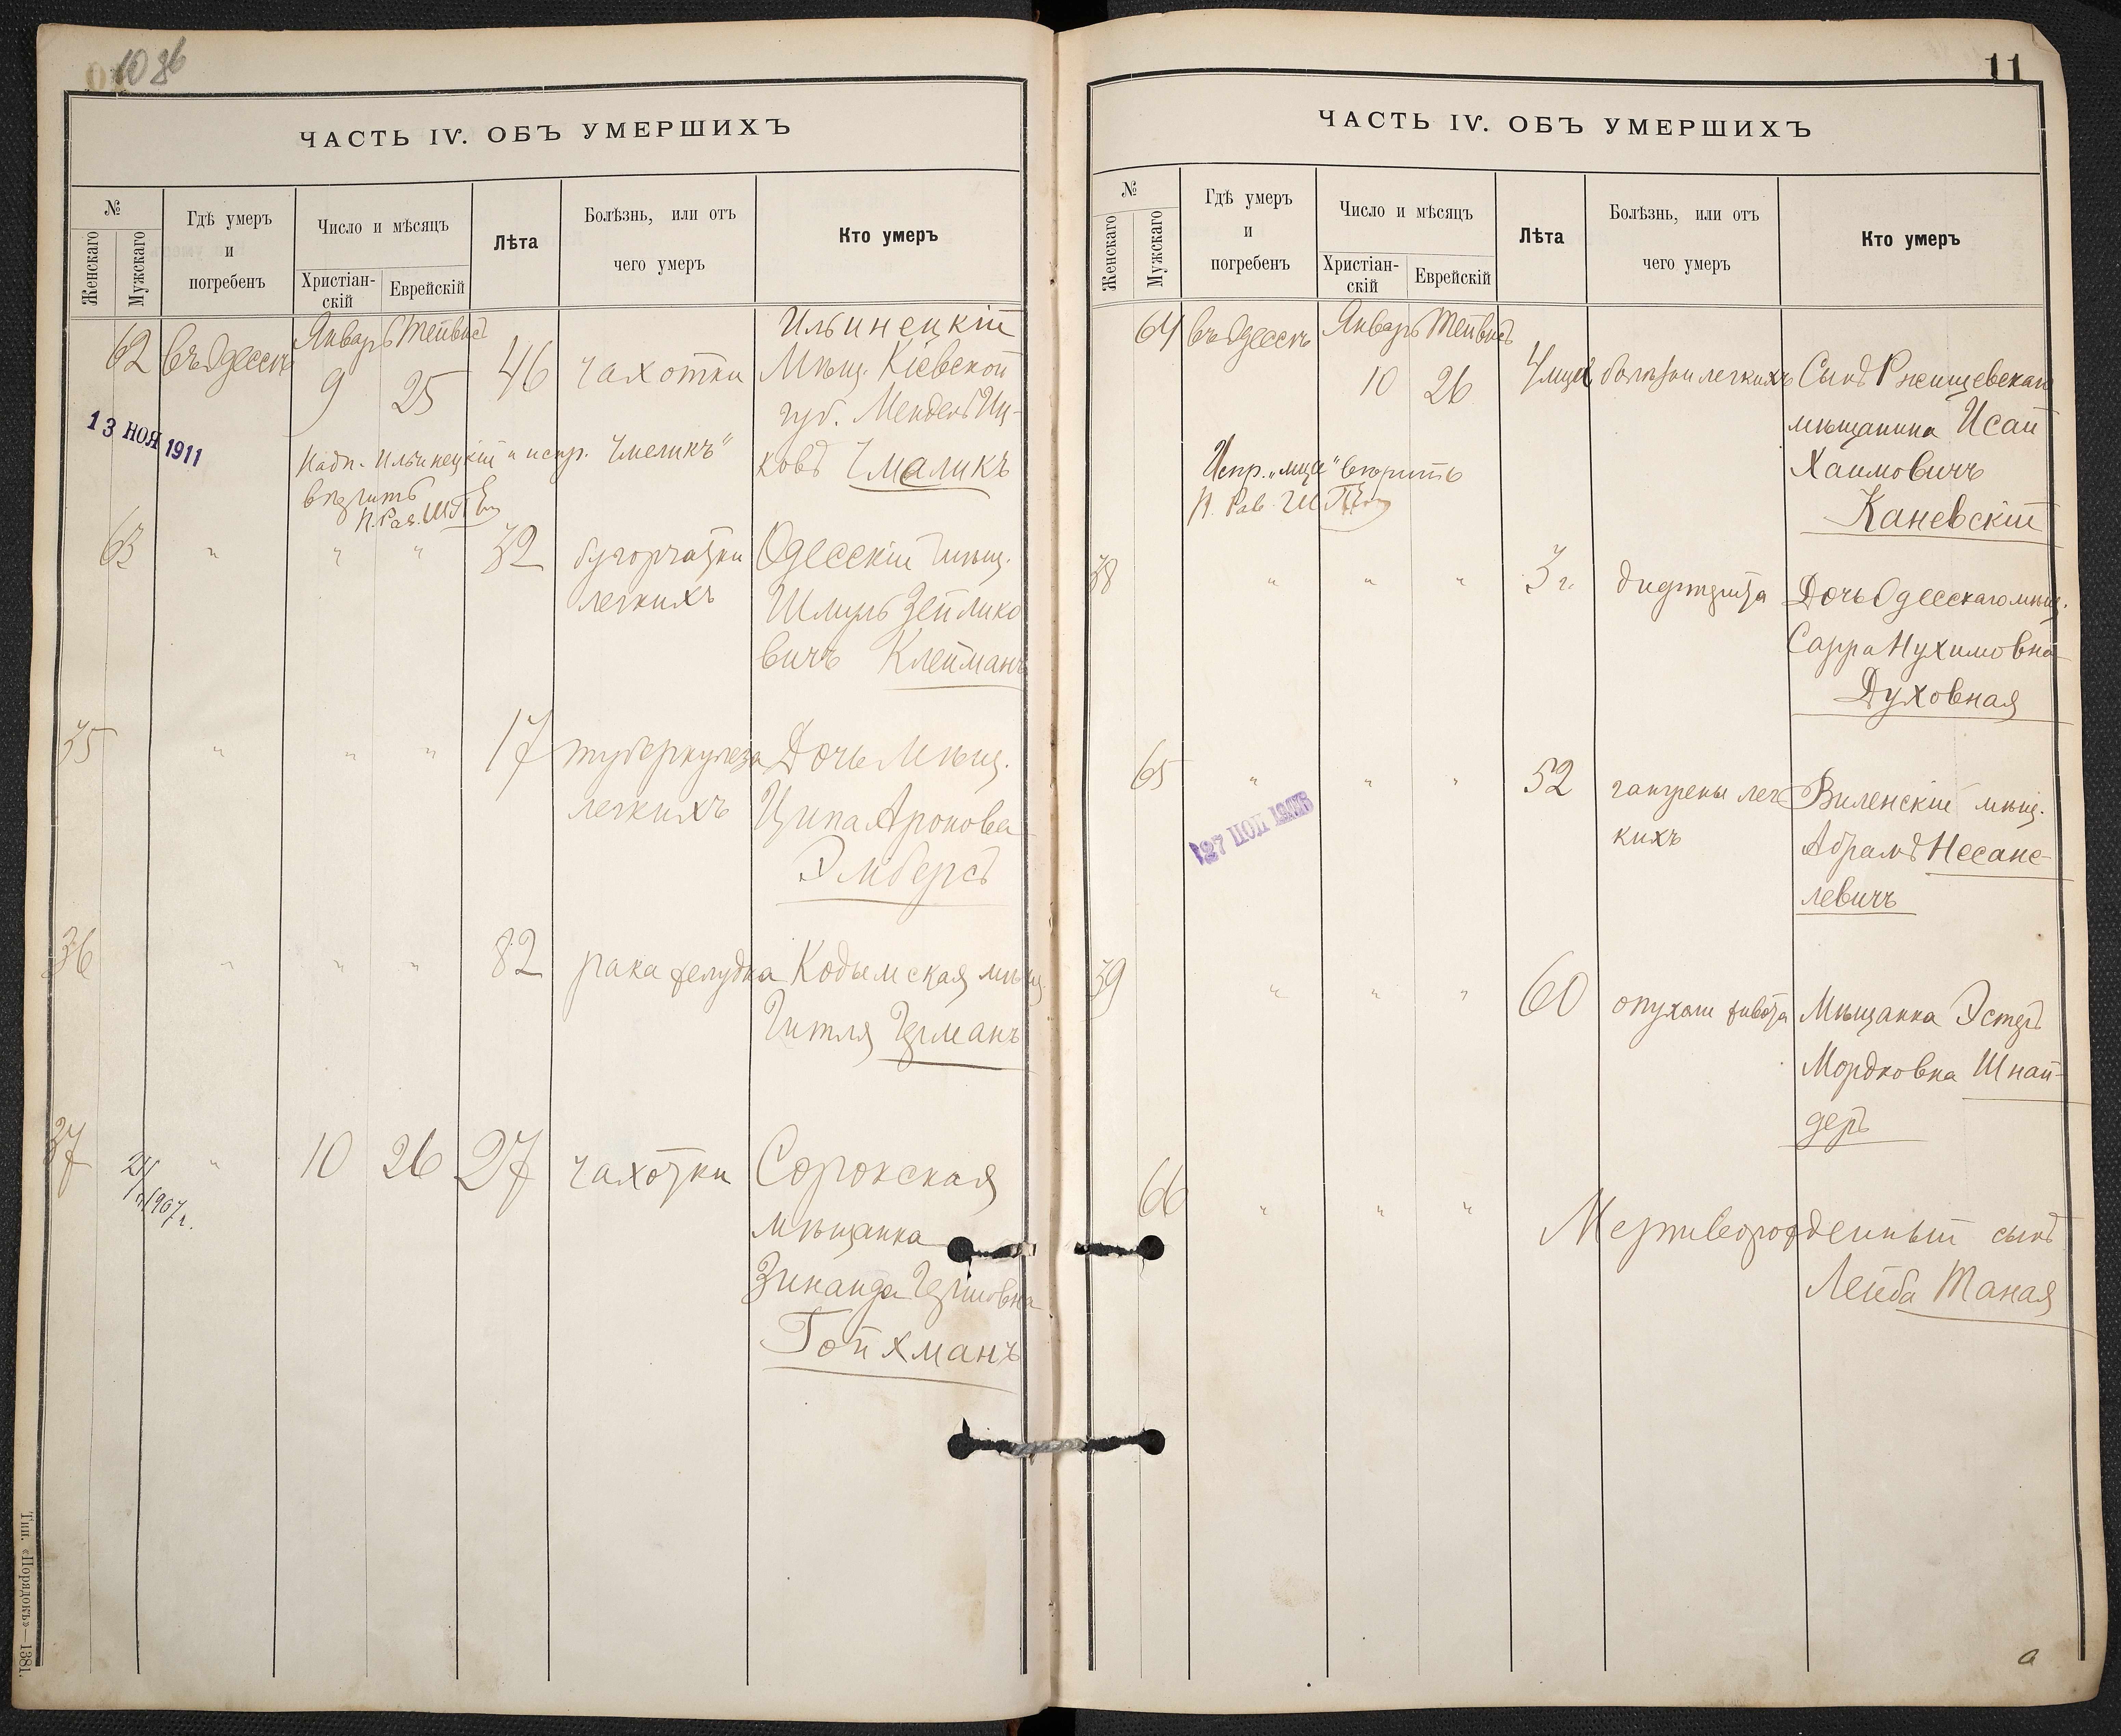 10 об
ЧАСТЬ IV. ОБЪ УМЕРШИХЪ
№
Женскаго
Мужскаго
Гдѣ умеръ
и
погребенъ
Число и мѣсяцъ
Христіан-
скій
Еврейскій
Лѣта
Болѣзнь, или отъ
чего умеръ
Кто умеръ
62 въ Одессѣ Январь Тейвисъ
9 25 46 чахотки
Ильинецкій
Мѣщ. Кіевской
губ. Мендель Иц-
ковъ Чмаликъ
13 НОЯ 1911
Надп. Ильинецкій и испр. Чмеликъ"
вѣрить
63 " " " 32 бугорчатки
легкихъ
Одесскій мѣщ.
Шмуль Зейлико
вичъ Клейманъ
35 " " " 17 туберкулеза
легкихъ
Дочь мѣщ.
Ципа Аронова
Эльберъ
36 " " " 82 рака желудка
Кодымская мѣщ.
Гитля Германъ
37 " 10 26 27 чахотки
1907 г.
Сорокская
мѣщанка
Зинаида Гершовна
Гойхманъ
Тип. «Порядокъ»—1381.
11
ЧАСТЬ IV. ОБЪ УМЕРШИХЪ
№
Женскаго
Мужскаго
Гдѣ умеръ
и
погребенъ
Число и мѣсяцъ
Христіан-
скій
Еврейскій
Лѣта
Болѣзнь, или отъ
чего умеръ
Кто умеръ
64 въ Одессѣ Январь Тейвисъ
10 26 4 мца болѣзни легкихъ
Сынъ Ржищевскаго
мѣщанина Исай
Хаимовичъ
Каневскій
Испр. „мца" вѣрить
38 " " " 3 г. дифтерита
Дочь Одесскаго мѣщ.
Сарра Нухимовна
Духовная
65 " " " 52 гангрены лег
кихъ
Виленскій мѣщ.
Абрамъ Несане-
левичъ
39 " " " 60 опухоли живота
Мѣщанка Эстеръ
Мордковна Шнай-
деръ
66 " " " Мертворожденный сынъ
Лейба Таная
а